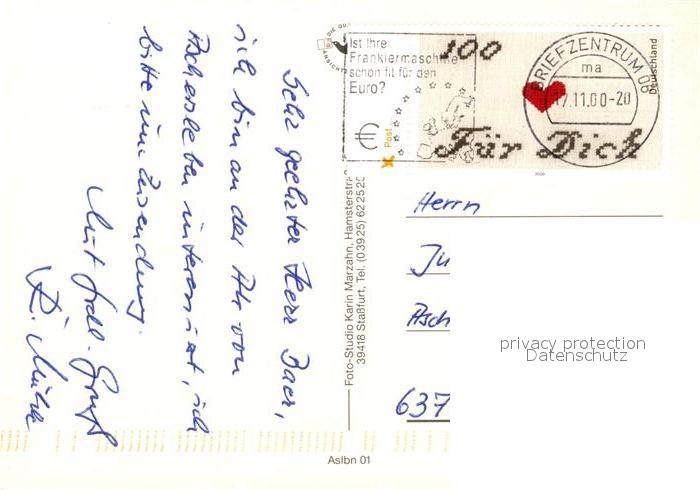 Sehr geehrter Herr Baer,
ich bin an der Ak von
Aschersleben interessiert, ich
bitte um Zusendung.
Mit frdl. Gruß
Ist Ihre
Frankiermaschine
schon fit für den
Euro?
€
100
Für Dich
Deutschland
Post
2000
BRIEFZENTRUM 06
ma
17.11.00-20
Herrn
Ju
Asch
637
Foto-Studio Karin Marzahn, Hamsterstr.
39418 Staßfurt, Tel. (03925) 622525
privacy protection
Datenschutz
Aslbn 01